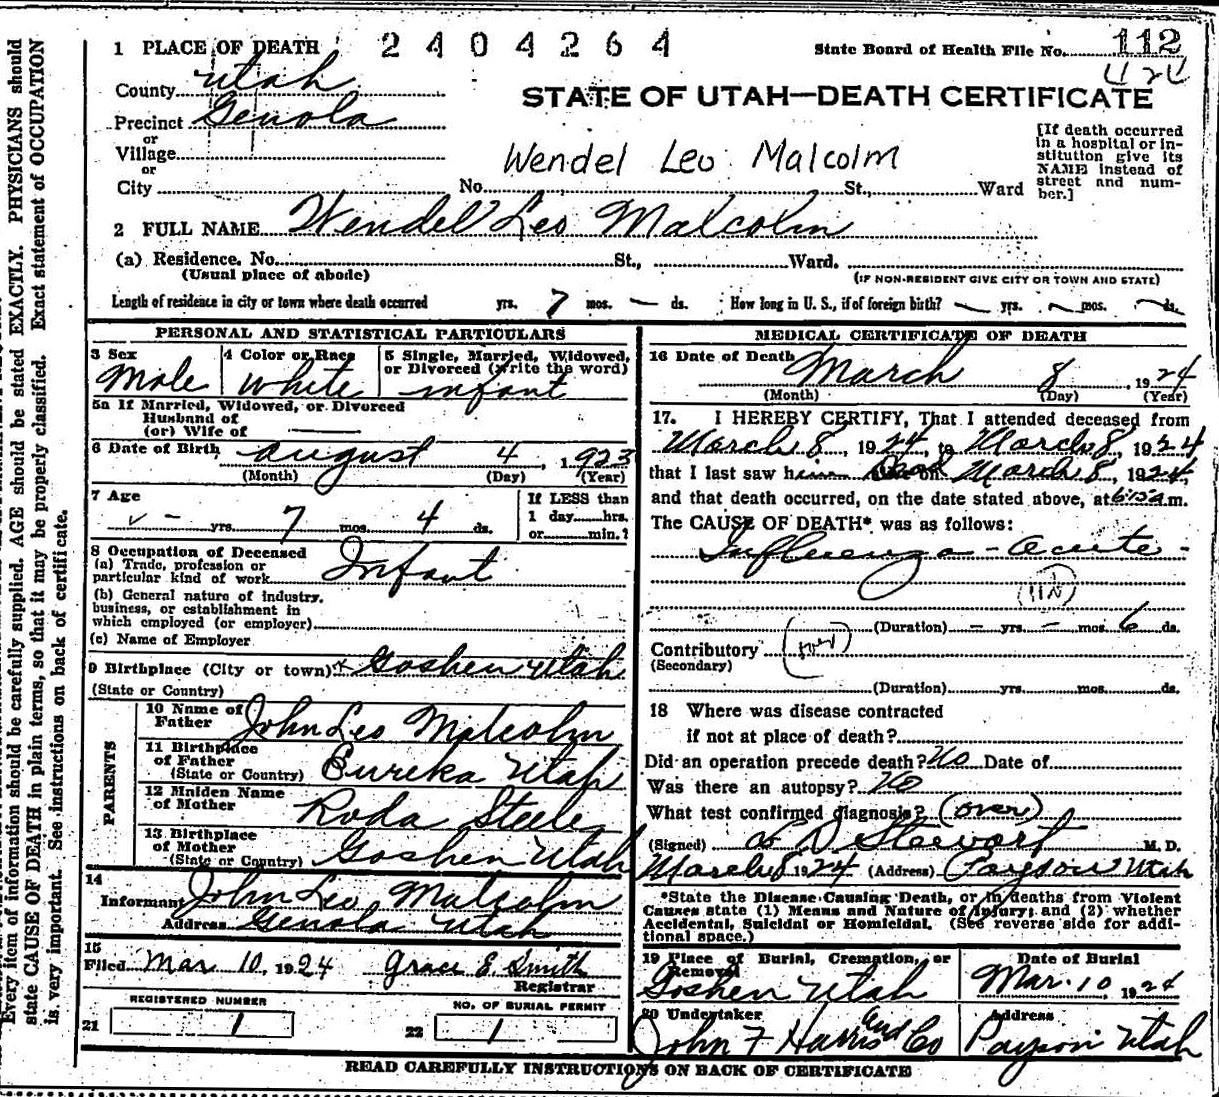 1 PLACE OF DEATH 2404264 State Board of Health File No. 112
424
County Utah
STATE OF UTAH—DEATH CERTIFICATE
Precinct Genola
or
Village
or
City No. St., Ward
Wendel Leo Malcolm
[If death occurred
in a hospital or in-
stitution give its
NAME instead of
street and num-
ber.]
2 FULL NAME Wendel Leo Malcolm
(a) Residence. No. St., Ward.
(Usual place of abode) (IF NON-RESIDENT GIVE CITY OR TOWN AND STATE)
Length of residence in city or town where death occurred yrs. 7 mos. — ds. How long in U. S., if of foreign birth? — yrs. — mos. — ds.
PERSONAL AND STATISTICAL PARTICULARS
3 Sex 4 Color or Race 5 Single, Married, Widowed,
or Divorced (write the word)
Male White infant
5a If Married, Widowed, or Divorced
Husband of
(or) Wife of
6 Date of Birth August 4, 1923
(Month) (Day) (Year)
7 Age If LESS than
1 day......hrs.
or......min.?
yrs. 7 mos. 4 ds.
8 Occupation of Deceased
(a) Trade, profession or
particular kind of work Infant
(b) General nature of industry,
business, or establishment in
which employed (or employer)
(c) Name of Employer
9 Birthplace (City or town) Goshen Utah
(State or Country)
PARENTS
10 Name of
Father John Leo Malcolm
11 Birthplace
of Father
(State or Country) Eureka Utah
12 Maiden Name
of Mother Roda Steele
13 Birthplace
of Mother
(State or Country) Goshen Utah
14
Informant John Leo Malcolm
Address Genola Utah
15
Filed Mar 10, 1924 Grace E. Smith
Registrar
REGISTERED NUMBER NO. OF BURIAL PERMIT
21 1 22 1
MEDICAL CERTIFICATE OF DEATH
16 Date of Death March 8, 1924
(Month) (Day) (Year)
17. I HEREBY CERTIFY, That I attended deceased from
March 8, 1924, to March 8, 1924
that I last saw him Dead on March 8, 1924,
and that death occurred, on the date stated above, at 6:15 a.m.
The CAUSE OF DEATH* was as follows:
Influenza - acute -
(11N)
(Duration) — yrs. — mos. 6 ds.
Contributory (over)
(Secondary)
(Duration) yrs. mos. ds.
18 Where was disease contracted
if not at place of death?
Did an operation precede death? No Date of
Was there an autopsy? No
What test confirmed diagnosis? (over)
(Signed) L D Stewart M. D.
March 8 1924 (Address) Payson Utah
*State the Disease Causing Death, or in deaths from Violent
Causes state (1) Means and Nature of Injury; and (2) whether
Accidental, Suicidal or Homicidal. (See reverse side for addi-
tional space.)
19 Place of Burial, Cremation, or
Removal Date of Burial
Goshen Utah Mar. 10, 1924
20 Undertaker Address
John F Harris and Co Payson Utah
READ CAREFULLY INSTRUCTIONS ON BACK OF CERTIFICATE
Every item of information should be carefully supplied. AGE should be stated EXACTLY. PHYSICIANS should
state CAUSE OF DEATH in plain terms, so that it may be properly classified. Exact statement of OCCUPATION
is very important. See instructions on back of certificate.